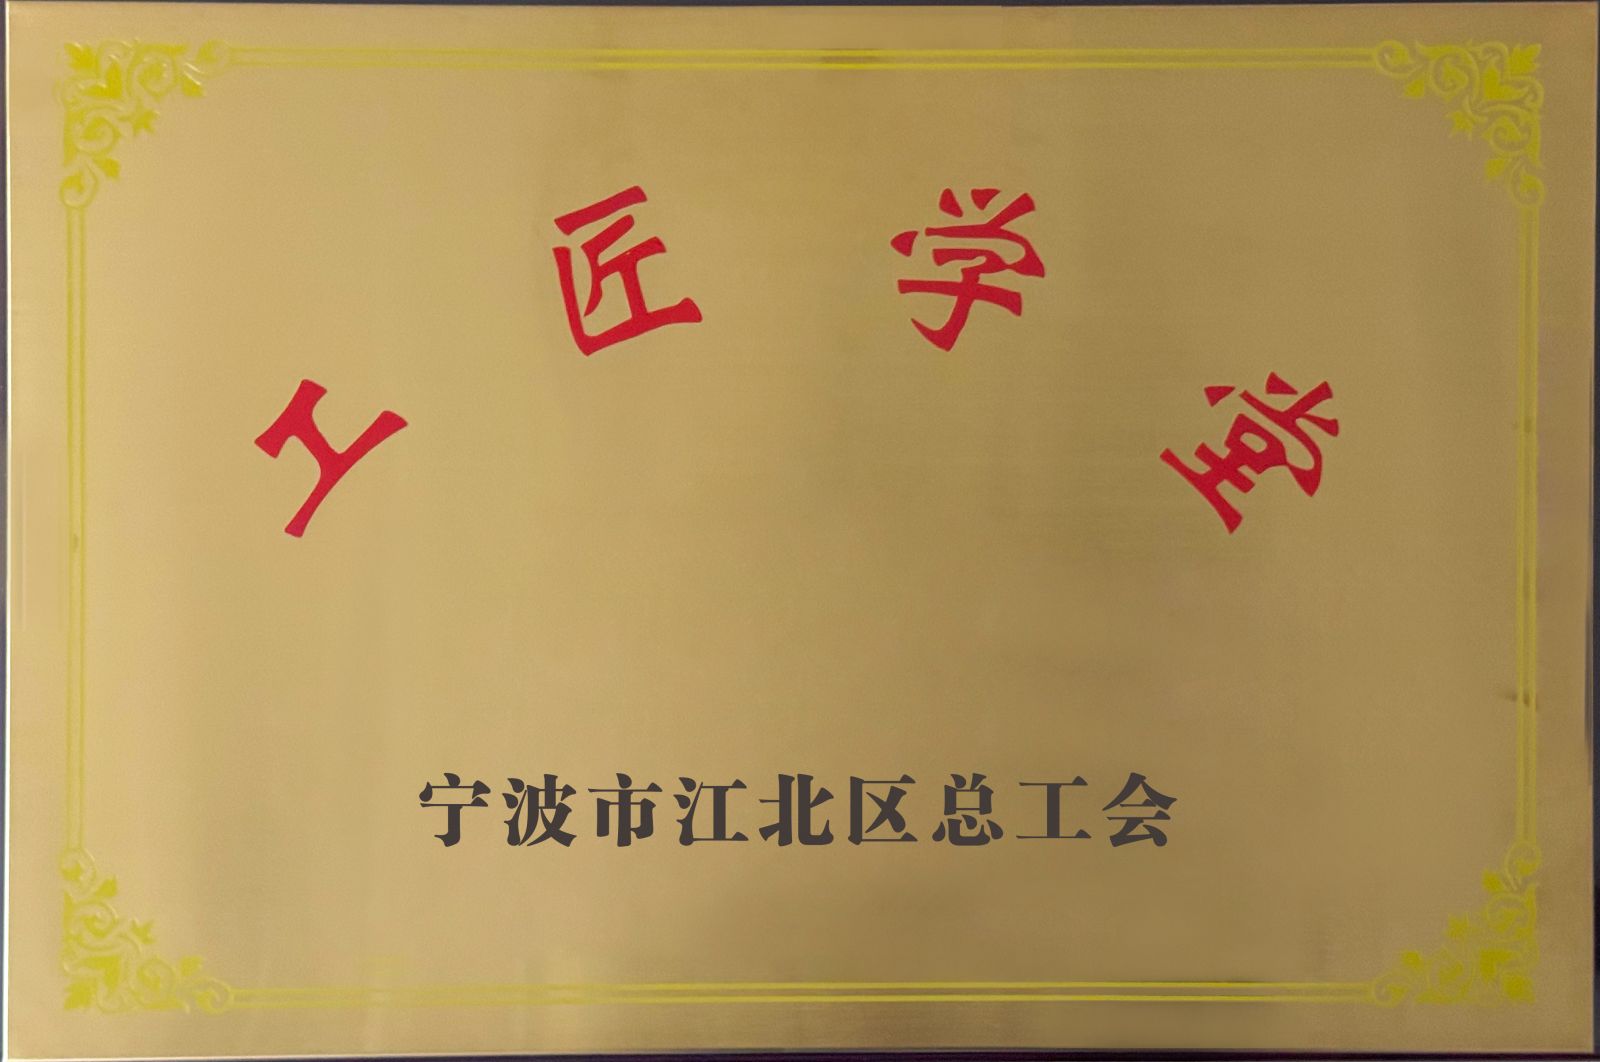 工匠学堂
宁波市江北区总工会